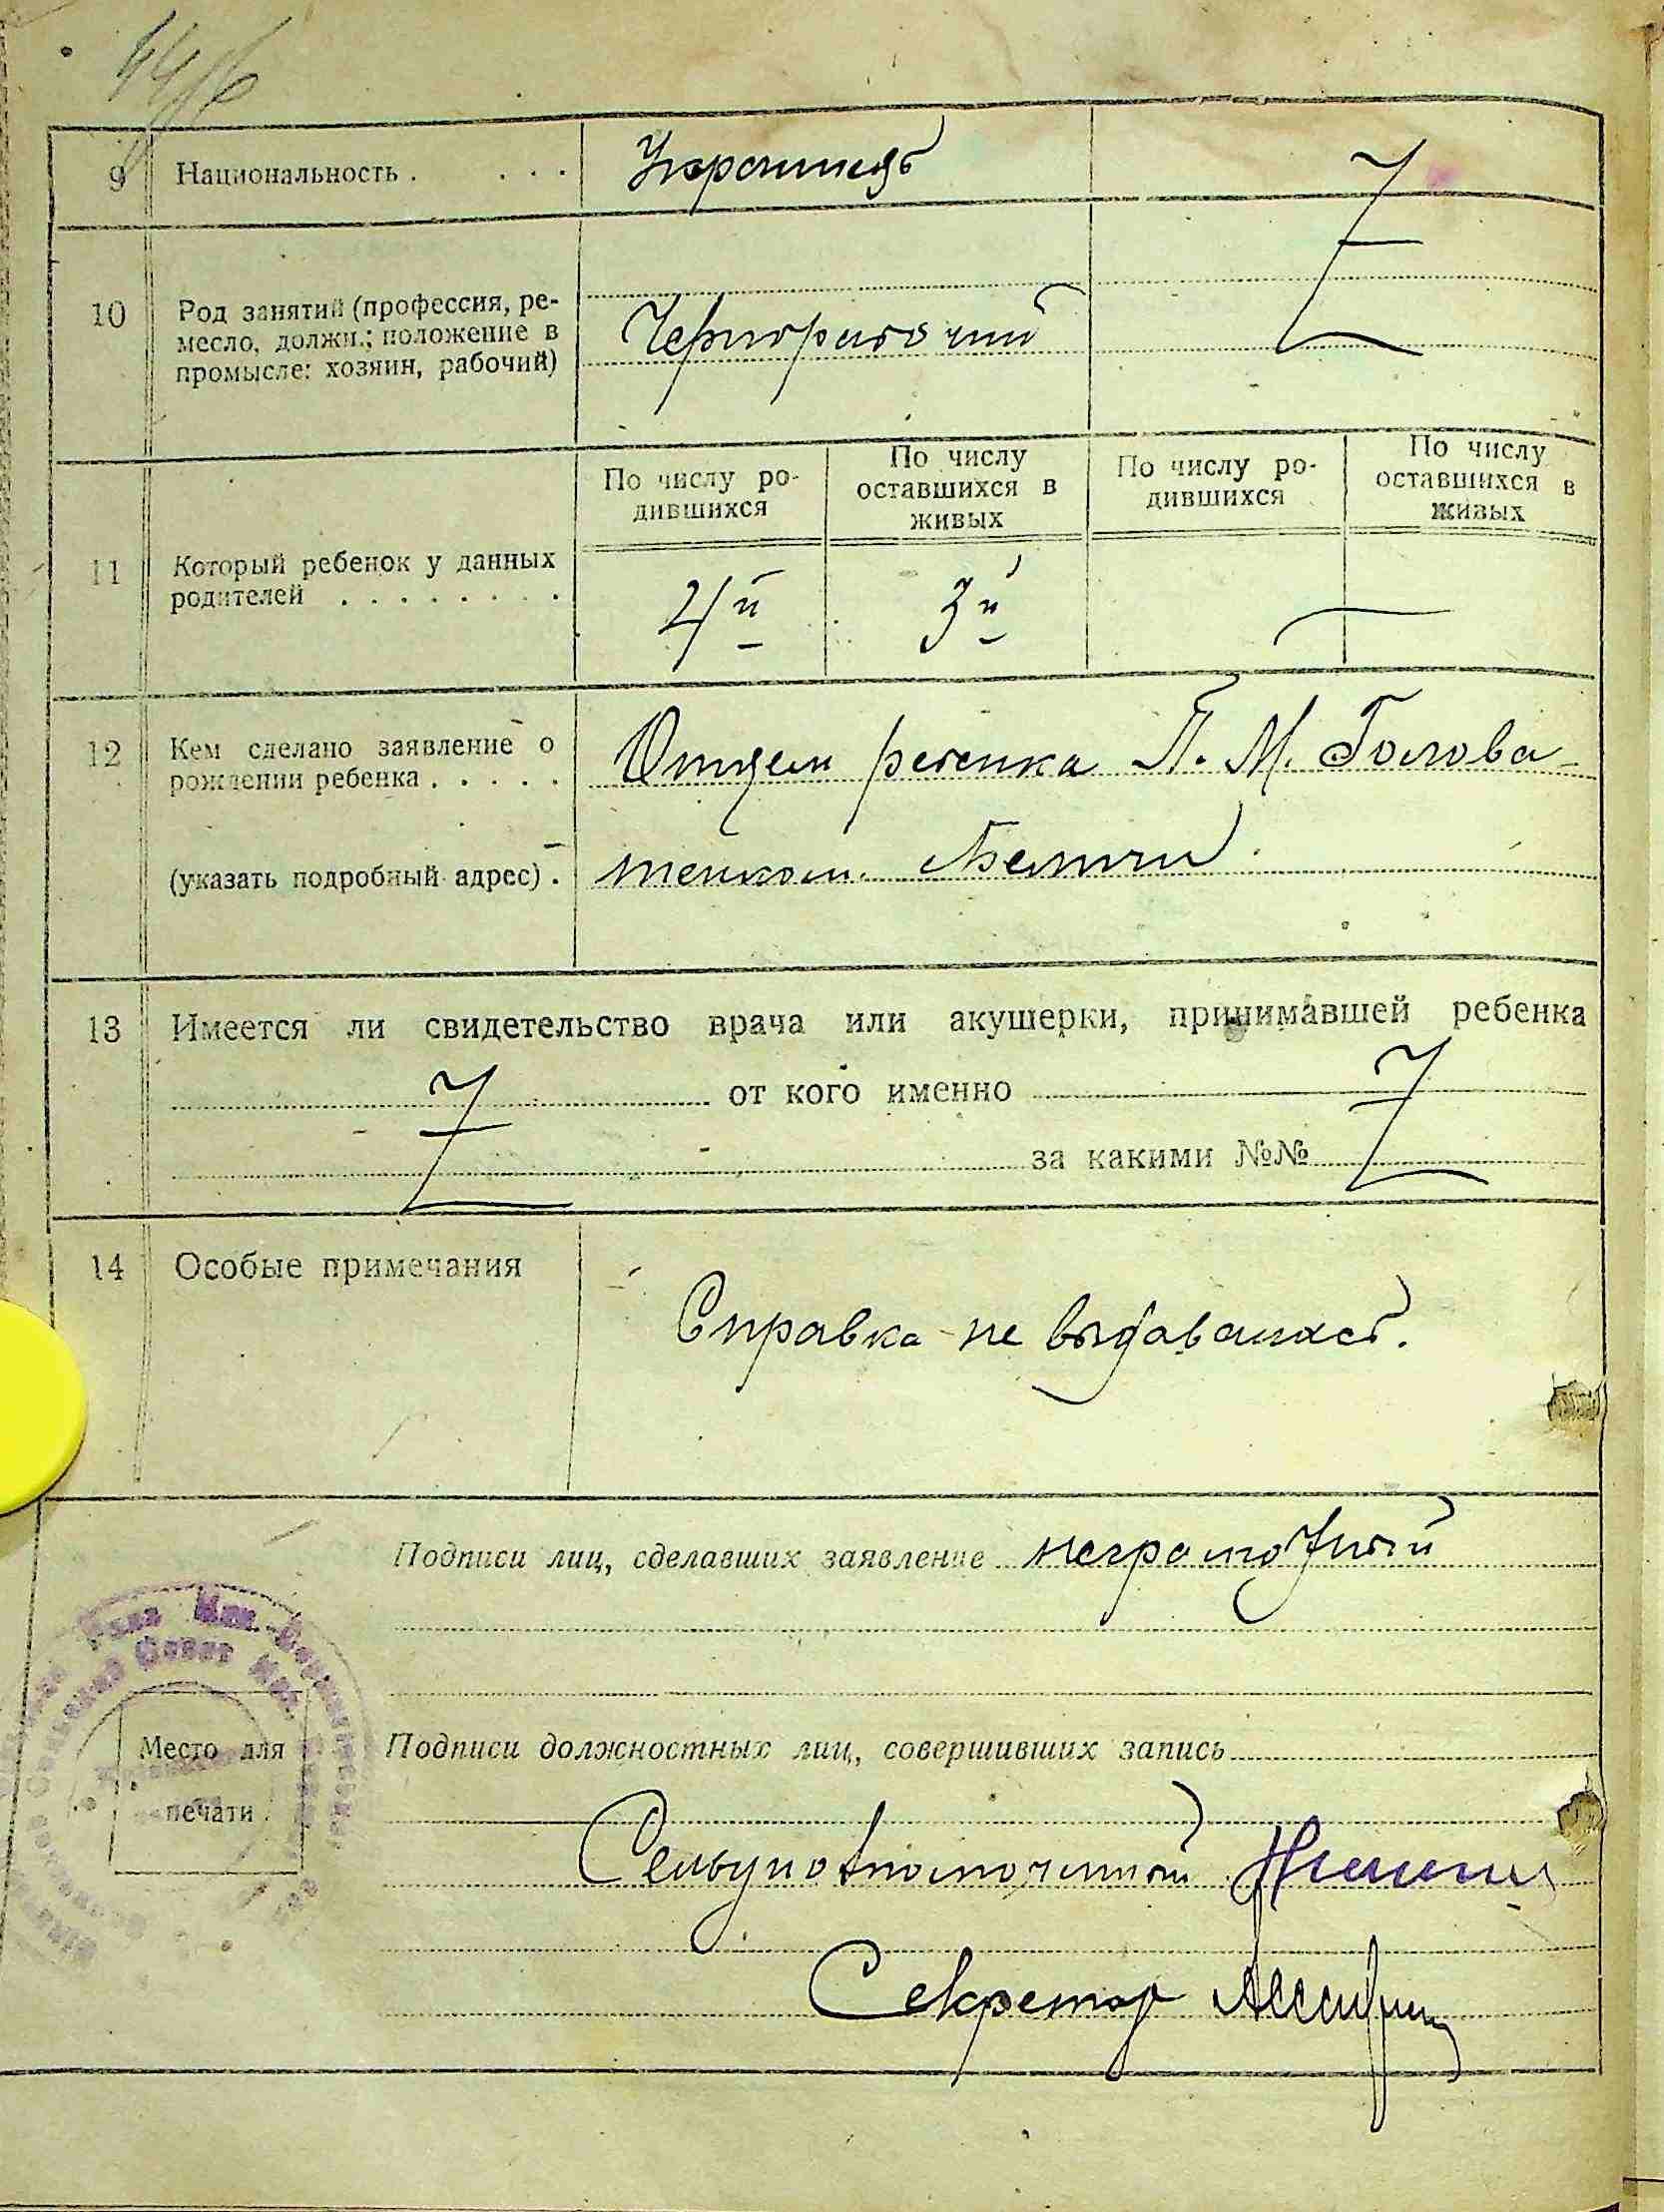 9 Национальность . . . . Украинець
10 Род занятий (профессия, ре-
месло, должн.; положение в
промысле: хозяин, рабочий)
Чернорабочий
По числу ро-
дившихся
По числу
оставшихся в
живых
По числу ро-
дившихся
По числу
оставшихся в
живых
11 Который ребенок у данных
родителей . . . . . . . .
4й 3й —
12 Кем сделано заявление о
рождении ребенка . . . . .
Отцем ребенка П. М. Голова-
(указать подробный адрес) .
тенком.
13 Имеется ли свидетельство врача или акушерки, принимавшей ребенка
от кого именно
за какими №№
14 Особые примечания
Справка не выдавалась.
Подписи лиц, сделавших заявление неграмотный
Подписи должностных лиц, совершивших запись
Место для
печати
Сельуполномоченный
Секретар